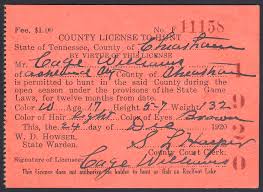 Fee, $1.00 No. F 11158
COUNTY LICENSE TO HUNT
State of Tennessee, County of Cheatham
BY VIRTUE OF THIS LICENSE
Mr. Cage Williams
of Ashland City County of Cheatham is
permitted to hunt in the said County during the
open season under the provisions of the State Game
Laws, for twelve months from date.
Color Age 17 Height 5-7 Weight 132
Color of Hair Light Color of Eyes Brown
This, the 24 day of Dec 1920
W. D. HOWSER,
State Warden. County Court Clerk.
Signature of Licensee: Cage Williams
This License does not authorize the holder to hunt or fish on Reelfoot Lake
1920